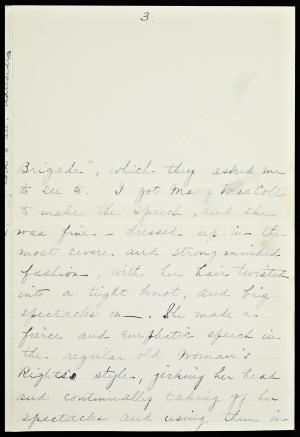 3.
Brigade", which they asked me
to see to. I got Mary MacColl
to make the speech, and she
was fine - dressed up in the
most severe and strong minded
fashion, with her hair twisted
into a tight knot, and big
spectacles on. She made a
fierce and emphatic speech in
the regular old Woman's
Rights's style, jerking her head
and continually taking of her
spectacles and using them in